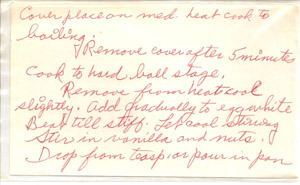 Cover place on med. heat cook to
boiling.
Remove cover after 5 minutes
Cook to hard ball stage.
Remove from heat cool
slightly. Add gradually to egg white
Beat till stiff. Let cool stirring
Stir in vanilla and nuts.
Drop from teasp. or pour in pan